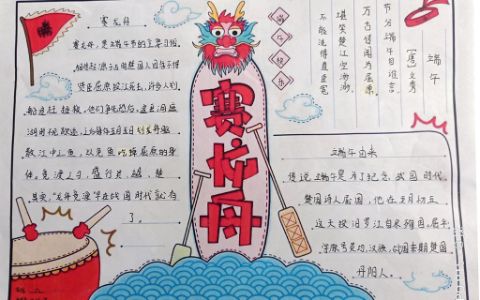 赛龙舟
赛龙舟,是端午节的主要习俗。
相传起源于古时楚国人因舍不得
贤臣屈原投江死去,许多人划
船追赶拯救。他们争先恐后,追至洞庭
湖时不见踪迹。之后每年五月五日划龙舟驱
散江中之鱼,以免鱼吃掉屈原的身
体。竞渡之习,盛行于吴、越、楚。
其实,“龙舟竞渡”早在战国时代就有
了。
赛龙舟
端午快乐
端午
【唐】文秀
节分端午自谁言
万古传闻为屈原
堪笑楚江空渺渺
不能洗得直臣冤
端午由来
传说端午是为了纪念战国时代
楚国诗人屈原,他在五月初五
这天投汨罗江自尽殉国。屈平,
字原 汉族,战国末期楚国
丹阳人。